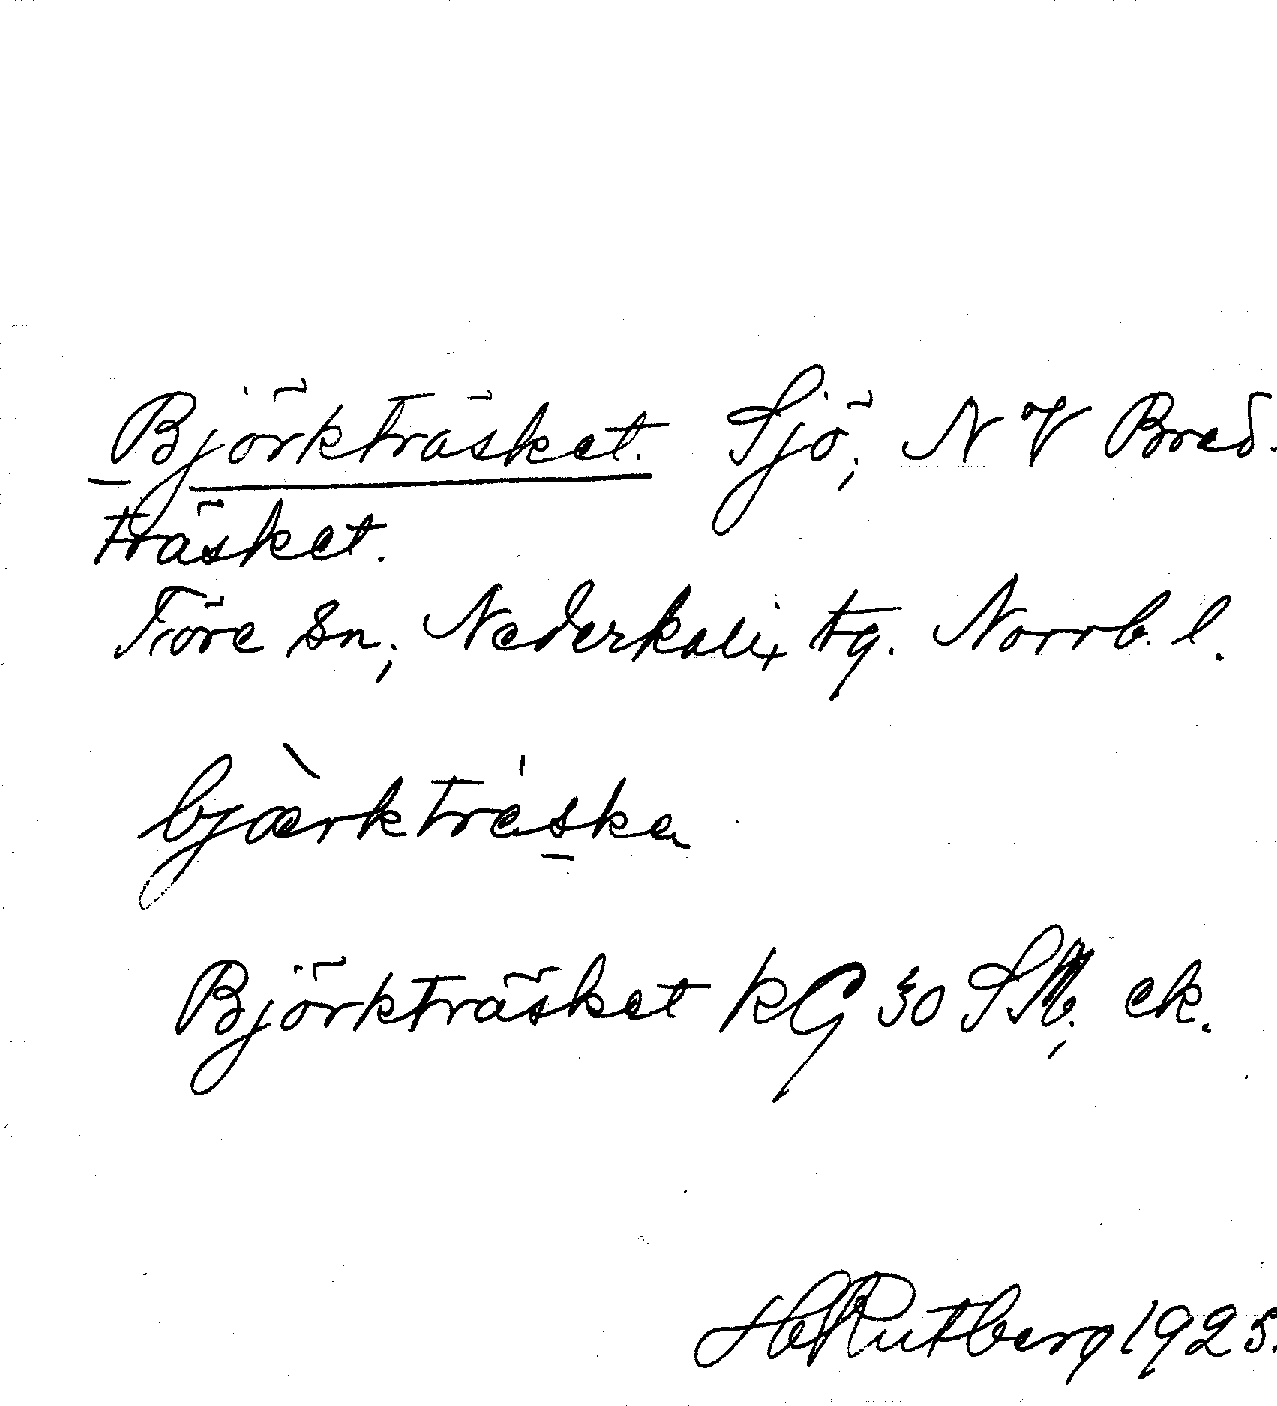 Björkträsket. Sjö, NV Bred-
träsket.
Töre sn, Nederkalix tg. Norrb. l.
bjærktrèska
Björkträsket KG 30 SV, ek.
H Rutberg 1925.